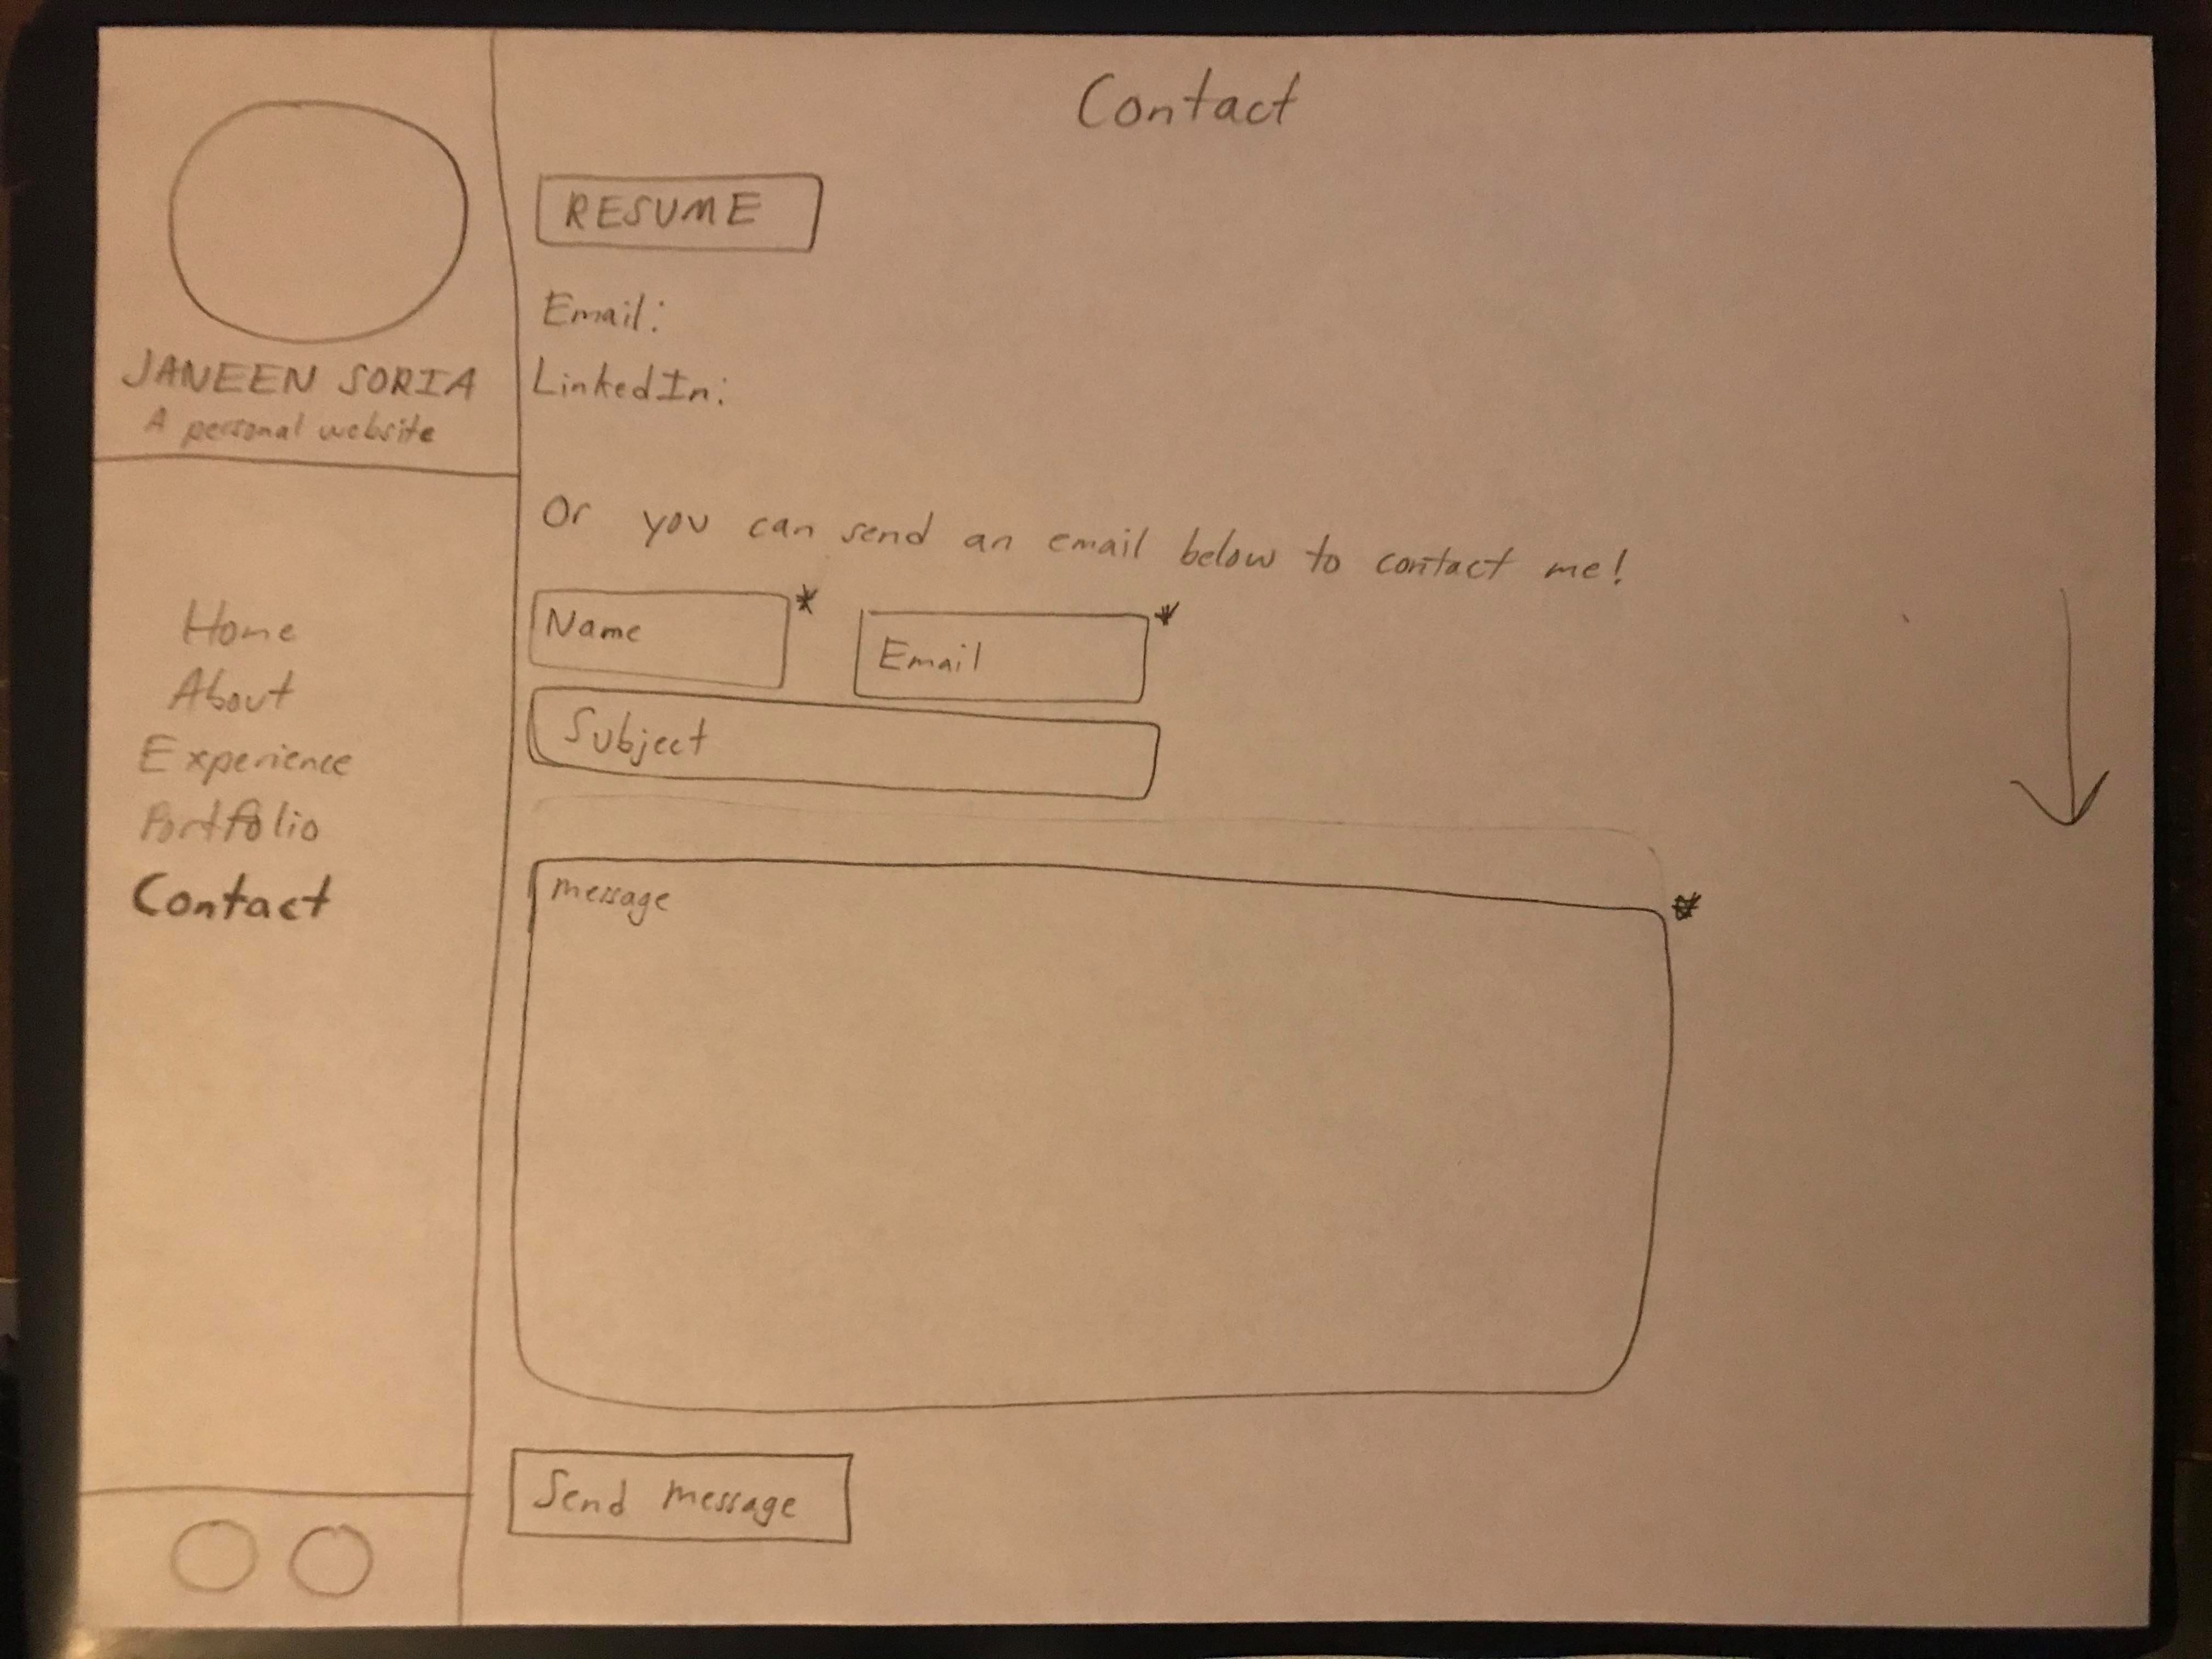 JANEEN SORIA
A personal website
Home
About
Experience
Portfolio
Contact
Contact
RESUME
Email:
LinkedIn:
Or you can send an email below to contact me!
Name * Email *
Subject
message *
Send message